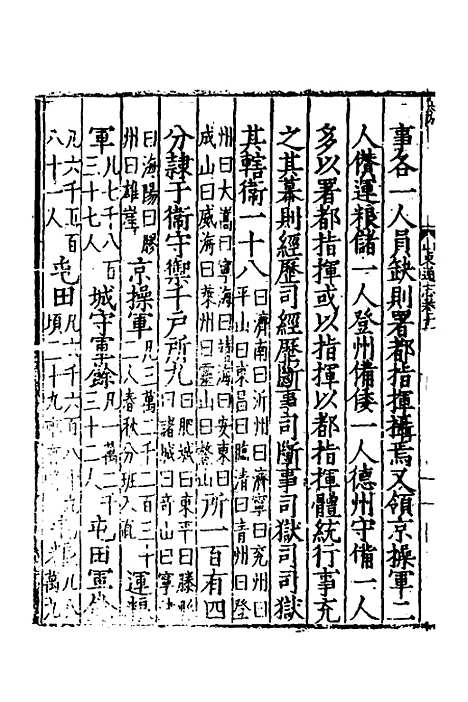 事各一人員缺則署都指揮攝焉又領京操軍二
人儹運粮儲一人登州備倭一人德州守備一人
多以署都指揮或以指揮以都指揮體統行事充
之其幕則經歷司經歷斷事司斷事司獄司司獄
其轄衛一十八曰濟南曰沂州曰濟寧曰兗州曰
平山曰東昌曰臨清曰青州曰登
州曰大嵩曰寧海曰靖海曰安東曰
成山曰威海曰萊州曰靈山曰鰲山所一百有四
分隸于衛守禦千戶所九曰肥城曰東平曰滕縣
曰諸城曰奇山曰寧
曰海陽曰膠
州曰雄崖京操軍凡三萬二千二百三十
二人春秋分班入運粮
軍凡七千八百
三十七人城守軍餘凡一萬二千
三十二人屯田軍
凡六千五百
八十一人屯田凡六千六百八十
頃二十九